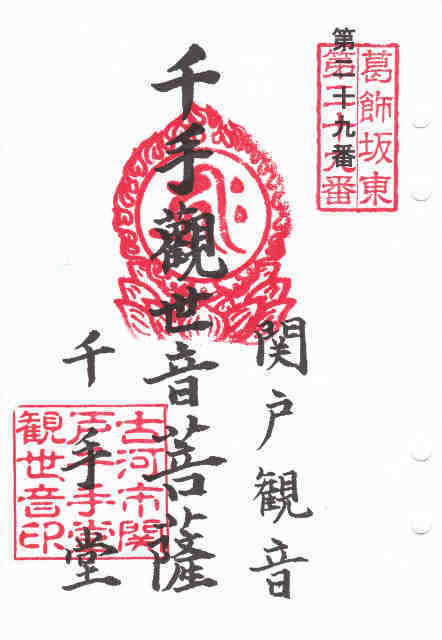 葛飾坂東
第二十九番
関戸観音
千手觀世音菩薩
千手堂
古河市関
戸千手堂
観世音印